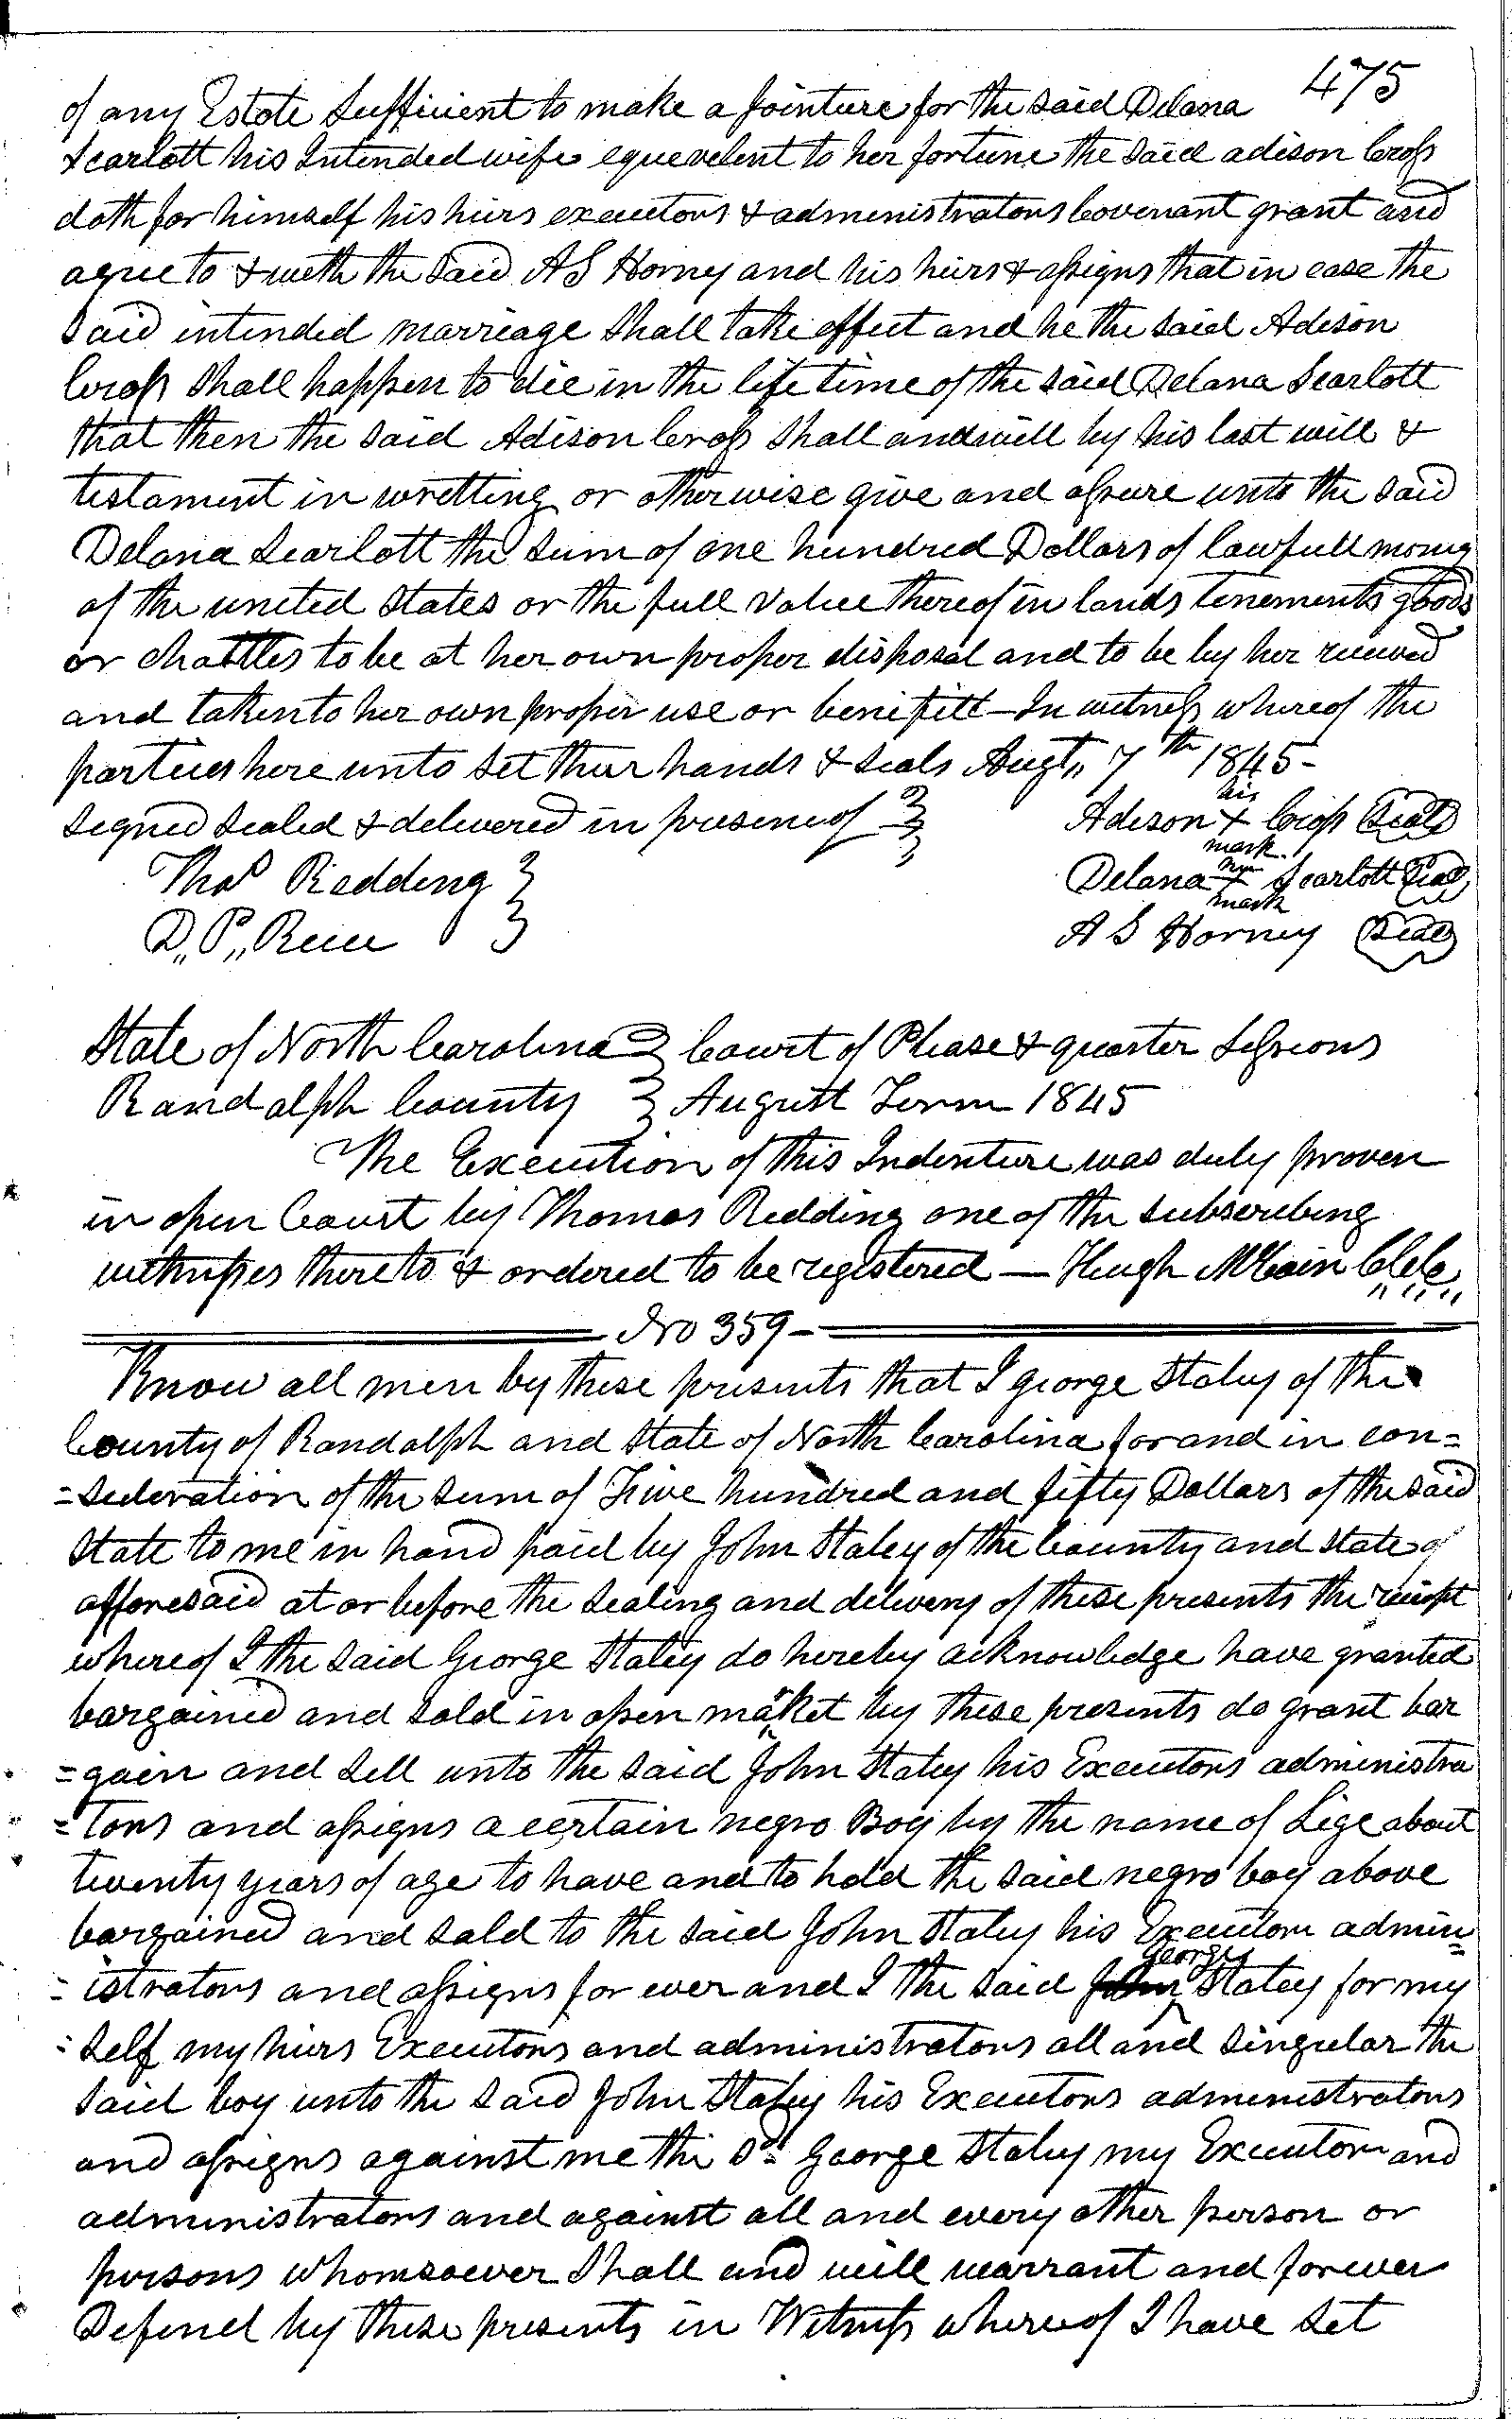 475
of any Estate Sufficient to make a jointure for the said Delana
Scarlott his Intended wife equevelent to her fortune the said adison Cross
doth for himself his heirs executors & administrators Covenant grant and
agree to & with the said A S Horney and his heirs & assigns that in case the
said intended marriage Shall take effect and he the said Adison
Cross Shall happen to die in the life time of the said Delana Scarlott
that then the said Adison Cross Shall and will by his last will &
testament in wretting or otherwise give and assure unto the said
Delana Scarlott the Sum of one hundred Dollars of lawfull money
of the united States or the full value thereof in lands tenements goods
or chattles to be at her own proper disposal and to be by her received
and taken to her own proper use or benifitt - In witness whereof the
parties here unto Set their hands & Seals Augt,, 7th 1845-
Signed Sealed & delivered in presence of
his
Adison + Cross Seal
mark.
Thos Redding
Delana + Scarlott Seal
mark
D,, P,, Rice
A S Horney Seal
State of North Carolina Court of Please & quarter Sessions
Randolph County August Term 1845
The Execution of this Indenture was duly proven
in open Court by Thomas Redding one of the Subscribing
witnesses thereto & ordered to be registered — Hugh McCain Clk
No 359-
Know all men by these presents that I george Staley of the
County of Randolph and State of North Carolina for and in con=
=sederation of the Sum of Five hundred and fifty Dollars of the said
State to me in hand paid by John Staley of the County and State of
afforesaid at or before the Sealing and delivery of these presents the receipt
whereof I the Said George Staley do hereby acknowledge have granted
bargained and Sold in open market by these presents do grant bar
=gain and Sell unto the Said John Staley his Executors administra
=tors and assigns a certain negro Boy by the name of Lige about
twenty years of age to have and to hold the said negro boy above
bargained and Sold to the Said John Staley his Executors admin=
George
=istrators and assigns for ever and I the Said John Staley for my
=Self my heirs Executors and administrators all and Singular the
Said boy unto the Said John Staley his Executors administrators
and assigns against me the Sd= George Staley my Executors and
administrators and against all and every other person or
persons whomsoever Shall and will warrant and forever
Defend by these presents in Witness whereof I have Set